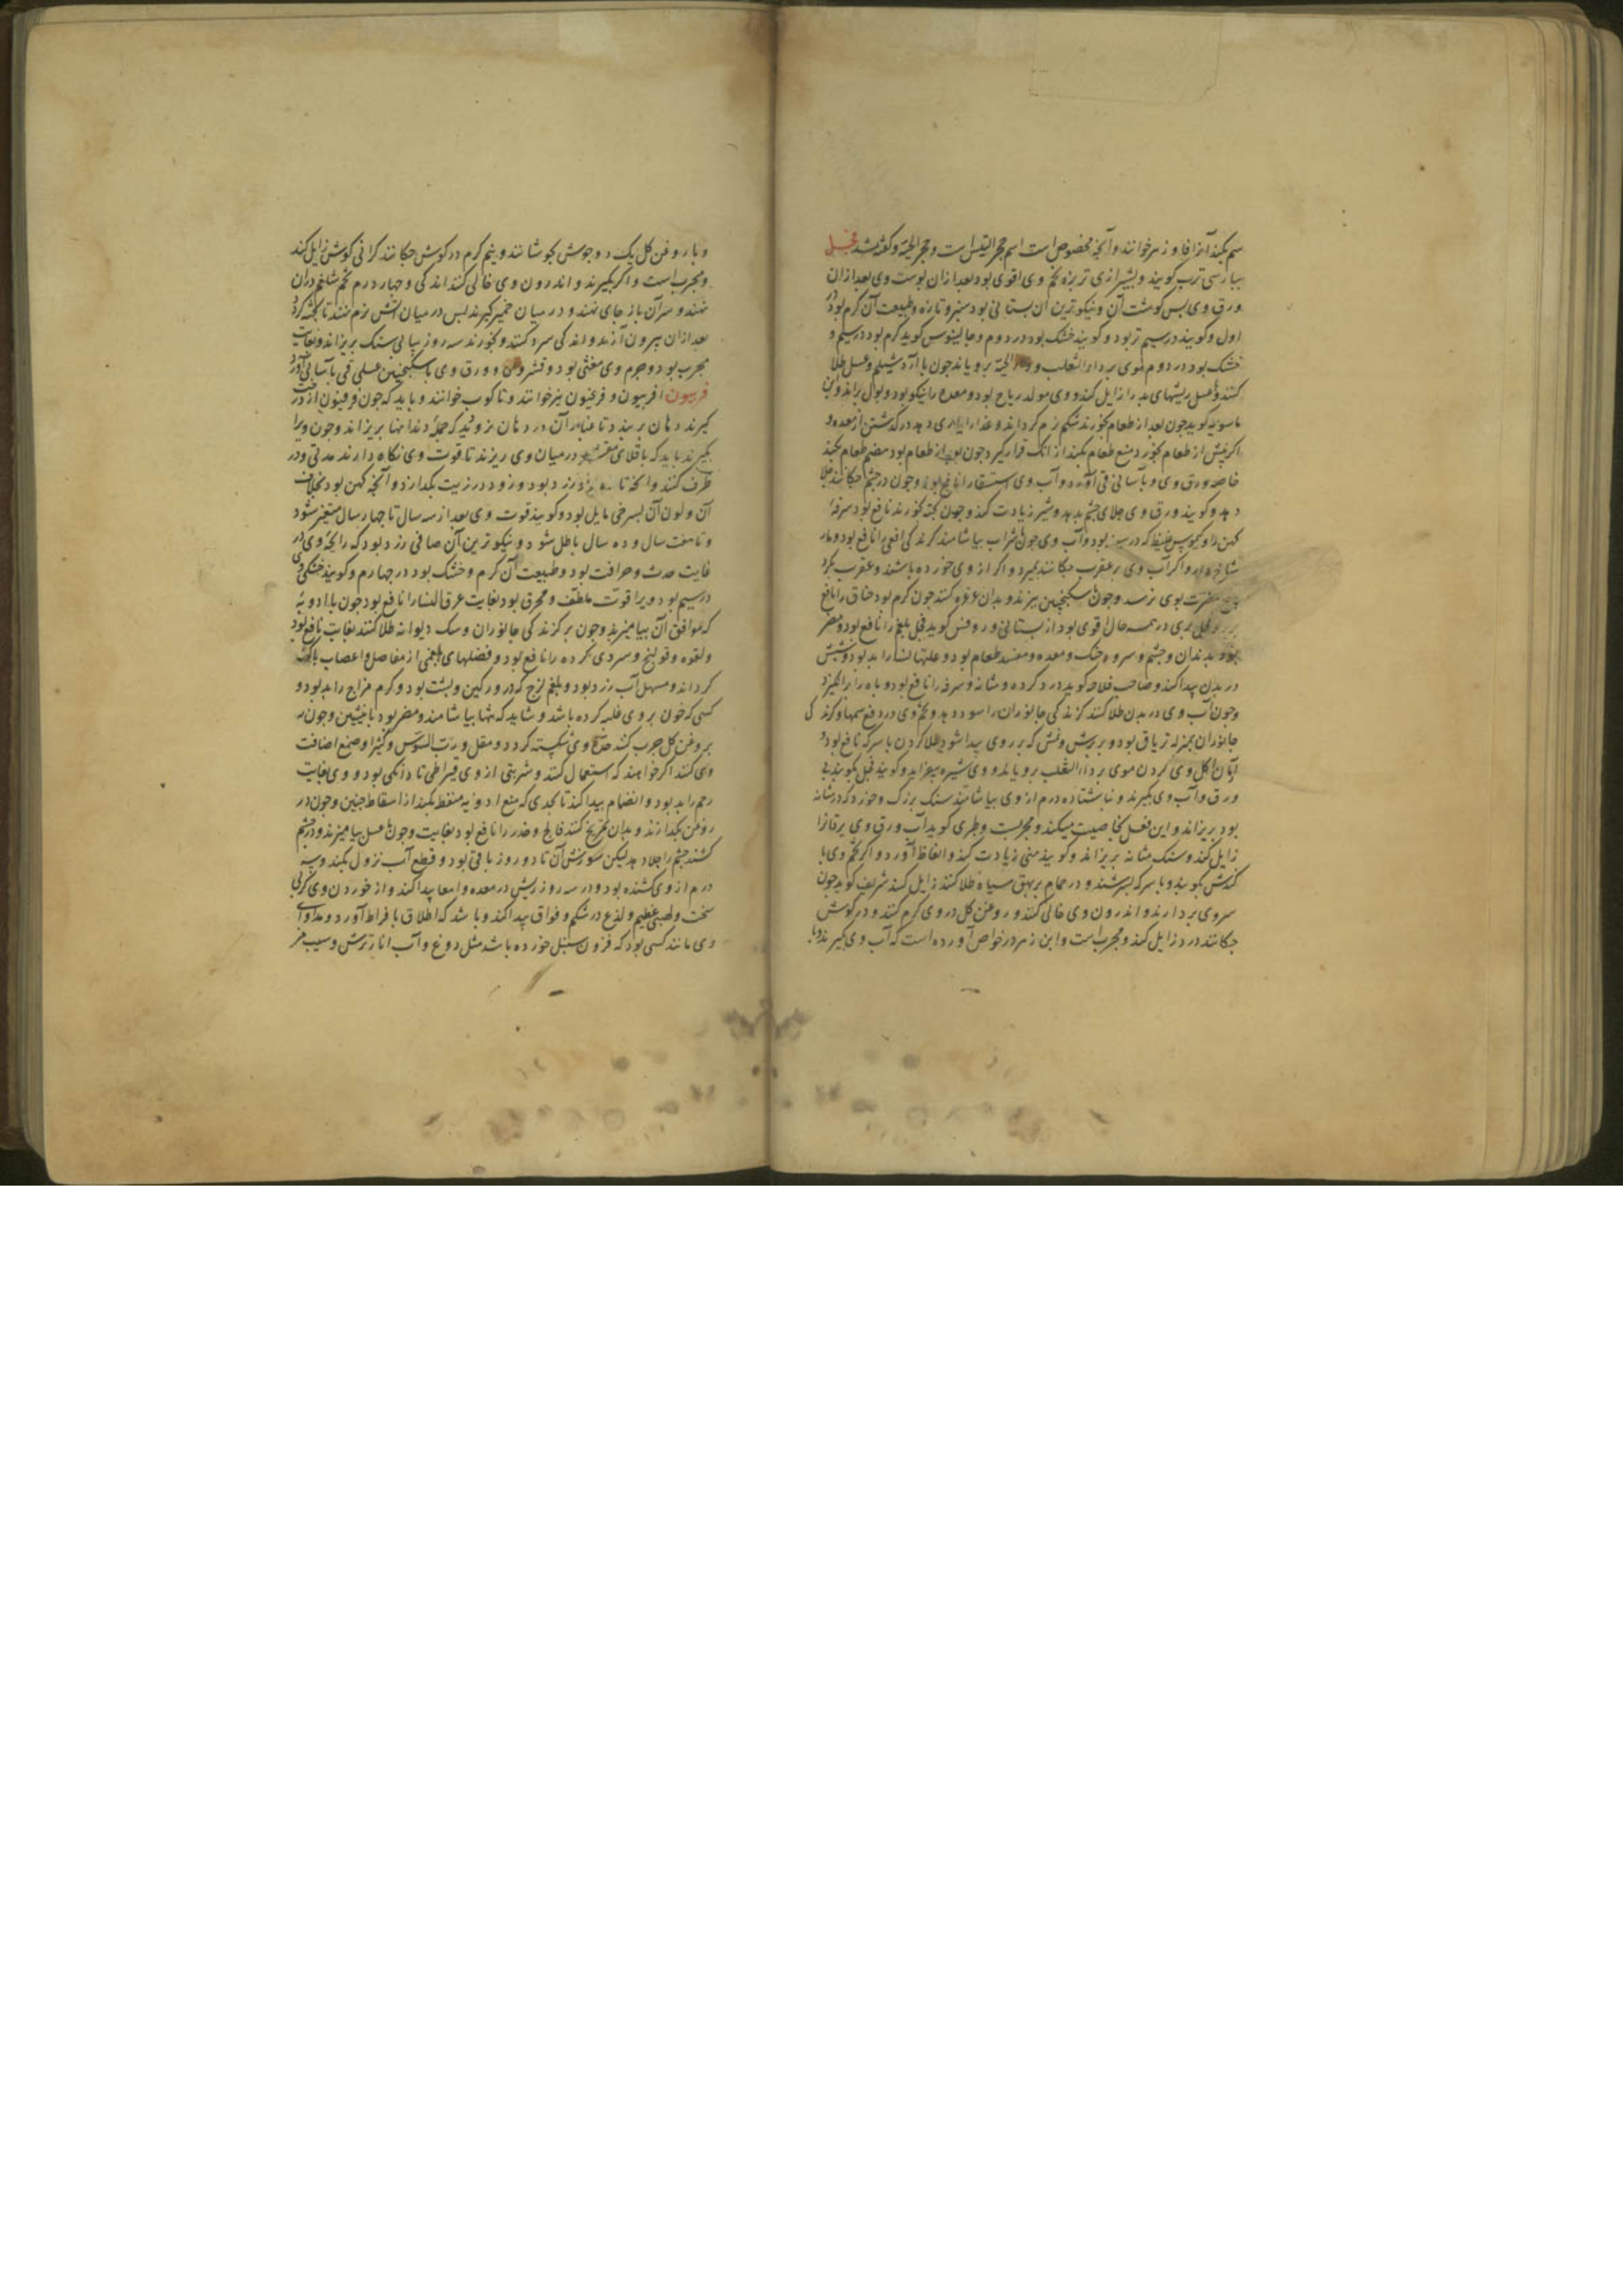 سم بکند آنرا فاوزهر خوانند و آنچه مخصوص است اسم حجر التیس است و حجر الحیة و گفته شد فجل
بپارسی ترب گویند و بشیرازی تربزه تخم وی اقوی بود بعد از ان پوست وی بعد از ان
ورق وی پس گوشت آن و نیکوترین آن بستانی بود سبز و تازه و طبیعت آن گرم بود در
اول و گویند در سیم تر بود و گویند خشک بود در دوم و جالینوس گوید گرم بود در سیم و
خشک بود در دوم موی بر داء الثعلب و داء الحیة برویاند چون با آرد شیلم و عسل طلا
کنند و با عسل ریشهای بد را زایل کند و وی مولد ریاح بود و معده را نیکو بود و بول براند و ابن
ماسویه گوید چون بعد از طعام بخورند شکم نرم گرداند و غذا را یاری دهد در گذشتن از معده و
اگر پیش از طعام بخورد منع طعام بکند از انک قرار گیرد و چون بعد از طعام بود هضم طعام بکند
خاصه ورق وی و بآسانی قی آورد و آب وی استسقا را نافع بود و چون در چشم چکانند جلا
دهد و گویند ورق وی جلای چشم بدهد و شیر زیادت کند و چون پخته بخورند نافع بود سرفهٔ
کهن را و کیموس غلیظ که در سینه بود و آب وی چون با شراب بیاشامند گزندگی افعی را نافع بود و مار
شاخدار و اگر آب وی بر عقرب چکانند بمیرد و اگر از وی خورده باشند و عقرب بگزد
هیچ مضرت بوی نرسد و چون با سکنجبین بپزند و بدان غرغره کنند چون گرم بود خناق را نافع
بود و فجل بری در همه حال قوی بود از بستانی و روفس گوید فجل بلغم را نافع بود و مضر
بود بدندان و چشم و سر و حنک و معده و مفسد طعام بود و علتها نسا را بد بود و شپش
در بدن پیدا کند و صاحب فلاحه گوید درد گرده و مثانه و سرفه را نافع بود و باه را برانگیزد
و چون آب وی در بدن طلا کنند گزندگی جانوران را سود دهد و تخم وی در دفع سمها و گزندگی
جانوران بمنزله تریاق بود و بر برش و نمش که بر روی پیدا شود طلا کردن با سرکه نافع بود و
آبان اکل وی کردن موی بر داء الثعلب برویاند و وی شیره بیفزاید و گویند فجل بکوبند بی
ورق و آب وی بگیرند و ناشتا ده درم از وی بیاشامند سنک بزرک و خورد که در مثانه
بود بریزاند و این فعل بخاصیت میکند و مجربست و طبری گوید آب ورق وی یرقان را
زایل کند و سنک مثانه بریزاند و گویند منی زیادت کند و انعاظ آورد و اگر تخم وی با
کندش بکوبند و با سرکه بسرشند و در حمام بر بهق سیاه طلا کنند زایل کند شریف گوید چون
سر وی بردارند و اندرون وی خالی کنند و روغن گل در وی گرم کنند و در گوش
چکانند درد زایل کند و مجربست و ابن زهر در خواص آورده است که آب وی بگیرند و با
و با روغن گل یک دو جوش بجوشانند و نیم گرم در گوش چکانند گرانی گوش زایل کند
و مجرب است و اگر بگیرند و اندرون وی خالی کنند اندکی و چهار درم تخم شلغم در ان
نهند و سر آن باز جای نهند و در میان خمیر گیرند پس در میان آتش نرم نهند تا پخته گردد
بعد ازان بیرون آرند و اندکی سرد کنند و بخورند سه روز پیاپی سنک بریزاند و بغایت
مجرب بود و جرم وی مغثی بود و قشر وی و ورق وی با سکنجبین عسلی قی بآسانی آورد
فربیون افربیون و فرعنیون نیز خوانند و تاکوب خوانند و باید که چون فرفیون از درخت
گیرند دهان بربندند تا غبار آن در دهان نرود که جمله دندانها بریزاند و چون ویرا
بگیرند باید که باقلای مقشر در میان وی ریزند تا قوت وی نگاه دارند مدتی و در
ظرف کنند و آنچه تازه بود زرد بود و زود در زیت بگدازد و آنچه کهن بود بخلاف
آن و لون آن بسرخی مایل بود و گویند قوت وی بعد از سه سال تا چهار سال متغیر شود
و تا هفت سال و ده سال باطل شود و نیکوترین آن صافی زرد بود که رایحهٔ وی در
غایت حدت و حرافت بود و طبیعت آن گرم و خشک بود در چهارم و گویند خشکی وی
در سیم بود و ویرا قوت ملطف و محرق بود بغایت عرق النسا را نافع بود چون با ادویهٔ
که موافق آن بیامیزند و چون بر گزندگی جانوران و سک دیوانه طلا کنند بغایت نافع بود
و لقوه و قولنج و سردی گرده را نافع بود و فضلهای بلغمی از مفاصل و اعصاب پاک
گرداند و مسهل آب زرد بود و بلغم لزج که در ورکین و پشت بود و گرم مزاج را بد بود و
کسی که خون بر وی غلبه کرده باشد و شاید که تنها بیاشامند و مضر بود بانثیین و چون
بروغن گل چرب کنند حدت وی شکسته گردد و مقل و رب السوس و کثیرا و صمغ اضافت
وی کنند اگر خواهند که استعمال کنند و شربتی از وی قیراطی تا دانکی بود و وی بغایت
رحم را بد بود و انضمام پیدا کند تا بحدی که منع ادویه مسقط بکند از اسقاط جنین و چون در
روغن بگدازند و بدان تمریخ کنند فالج و خدر را نافع بود بغایت و چون با عسل بیامیزند و در چشم
کشند چشم را جلا دهد لیکن سوزش آن تا دو روز باقی بود و قطع آب نزول بکند و سه
درم از وی کشنده بود و در سه روز ریش در معده و امعا پیدا کند و از خوردن وی کربی
سخت و لهیبی عظیم و لذع در شکم و فواق پیدا کند و باشد که اطلاق بافراط آورد و مداوای
وی مانند کسی بود که فرون سنبل خورده باشد مثل دوغ و آب انار ترش و سیب مز